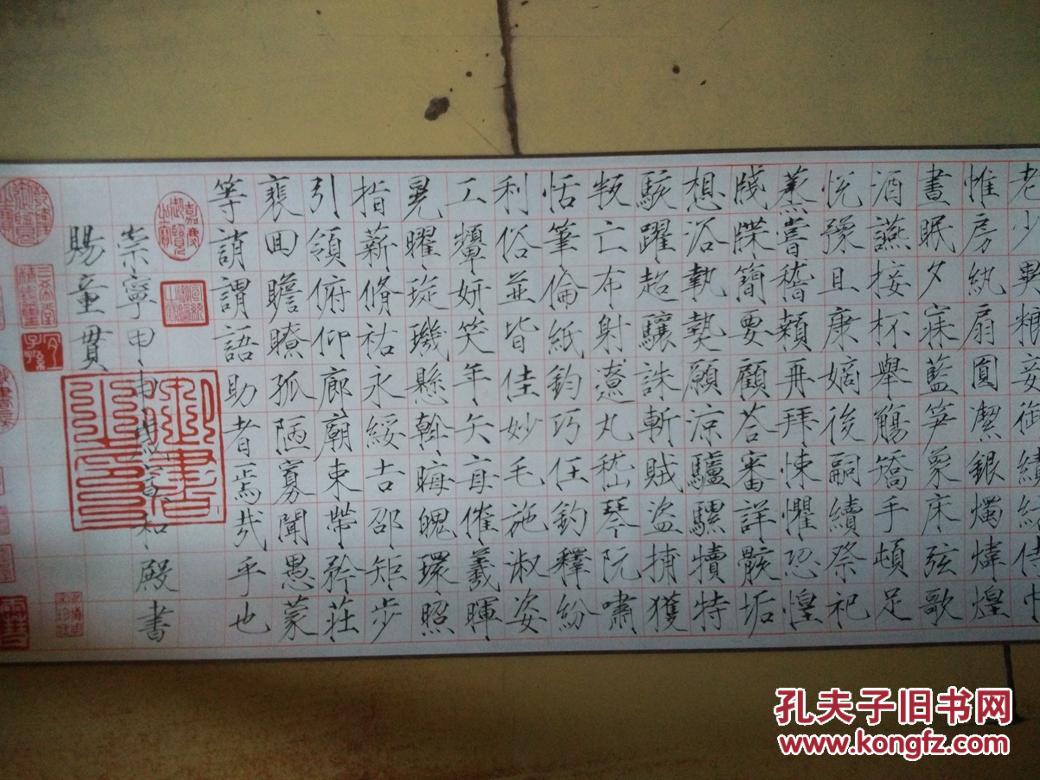 老少軟粮妾御績紡侍巾
惟房紈扇圓潔銀燭煒煌
晝眠夕寐藍笋象床弦歌
酒讌接杯舉觴矯手頓足
悅豫且康嫡後嗣續祭祀
蒸嘗稽顙再拜悚懼恐惶
牋牒簡要顧荅審詳骸垢
想浴執熱願涼驢騾犢特
駭躍超驤誅斬賊盜捕獲
叛亡布射遼丸嵇琴阮嘯
恬筆倫紙鈞巧任釣釋紛
利俗並皆佳妙毛施淑姿
工顰妍笑年矢每催羲暉
晃曜璇璣懸斡晦魄環照
指薪脩祜永綏吉邵矩步
引領俯仰廊廟束帶矜莊
裵回瞻瞭孤陋寡聞愚蒙
等誚謂語助者焉哉乎也
崇寧甲申宣和殿書
賜童貫
嘉慶御覽之寶
三希堂精鑑璽
宜子孫
孔夫子旧书网
www.kongfz.com